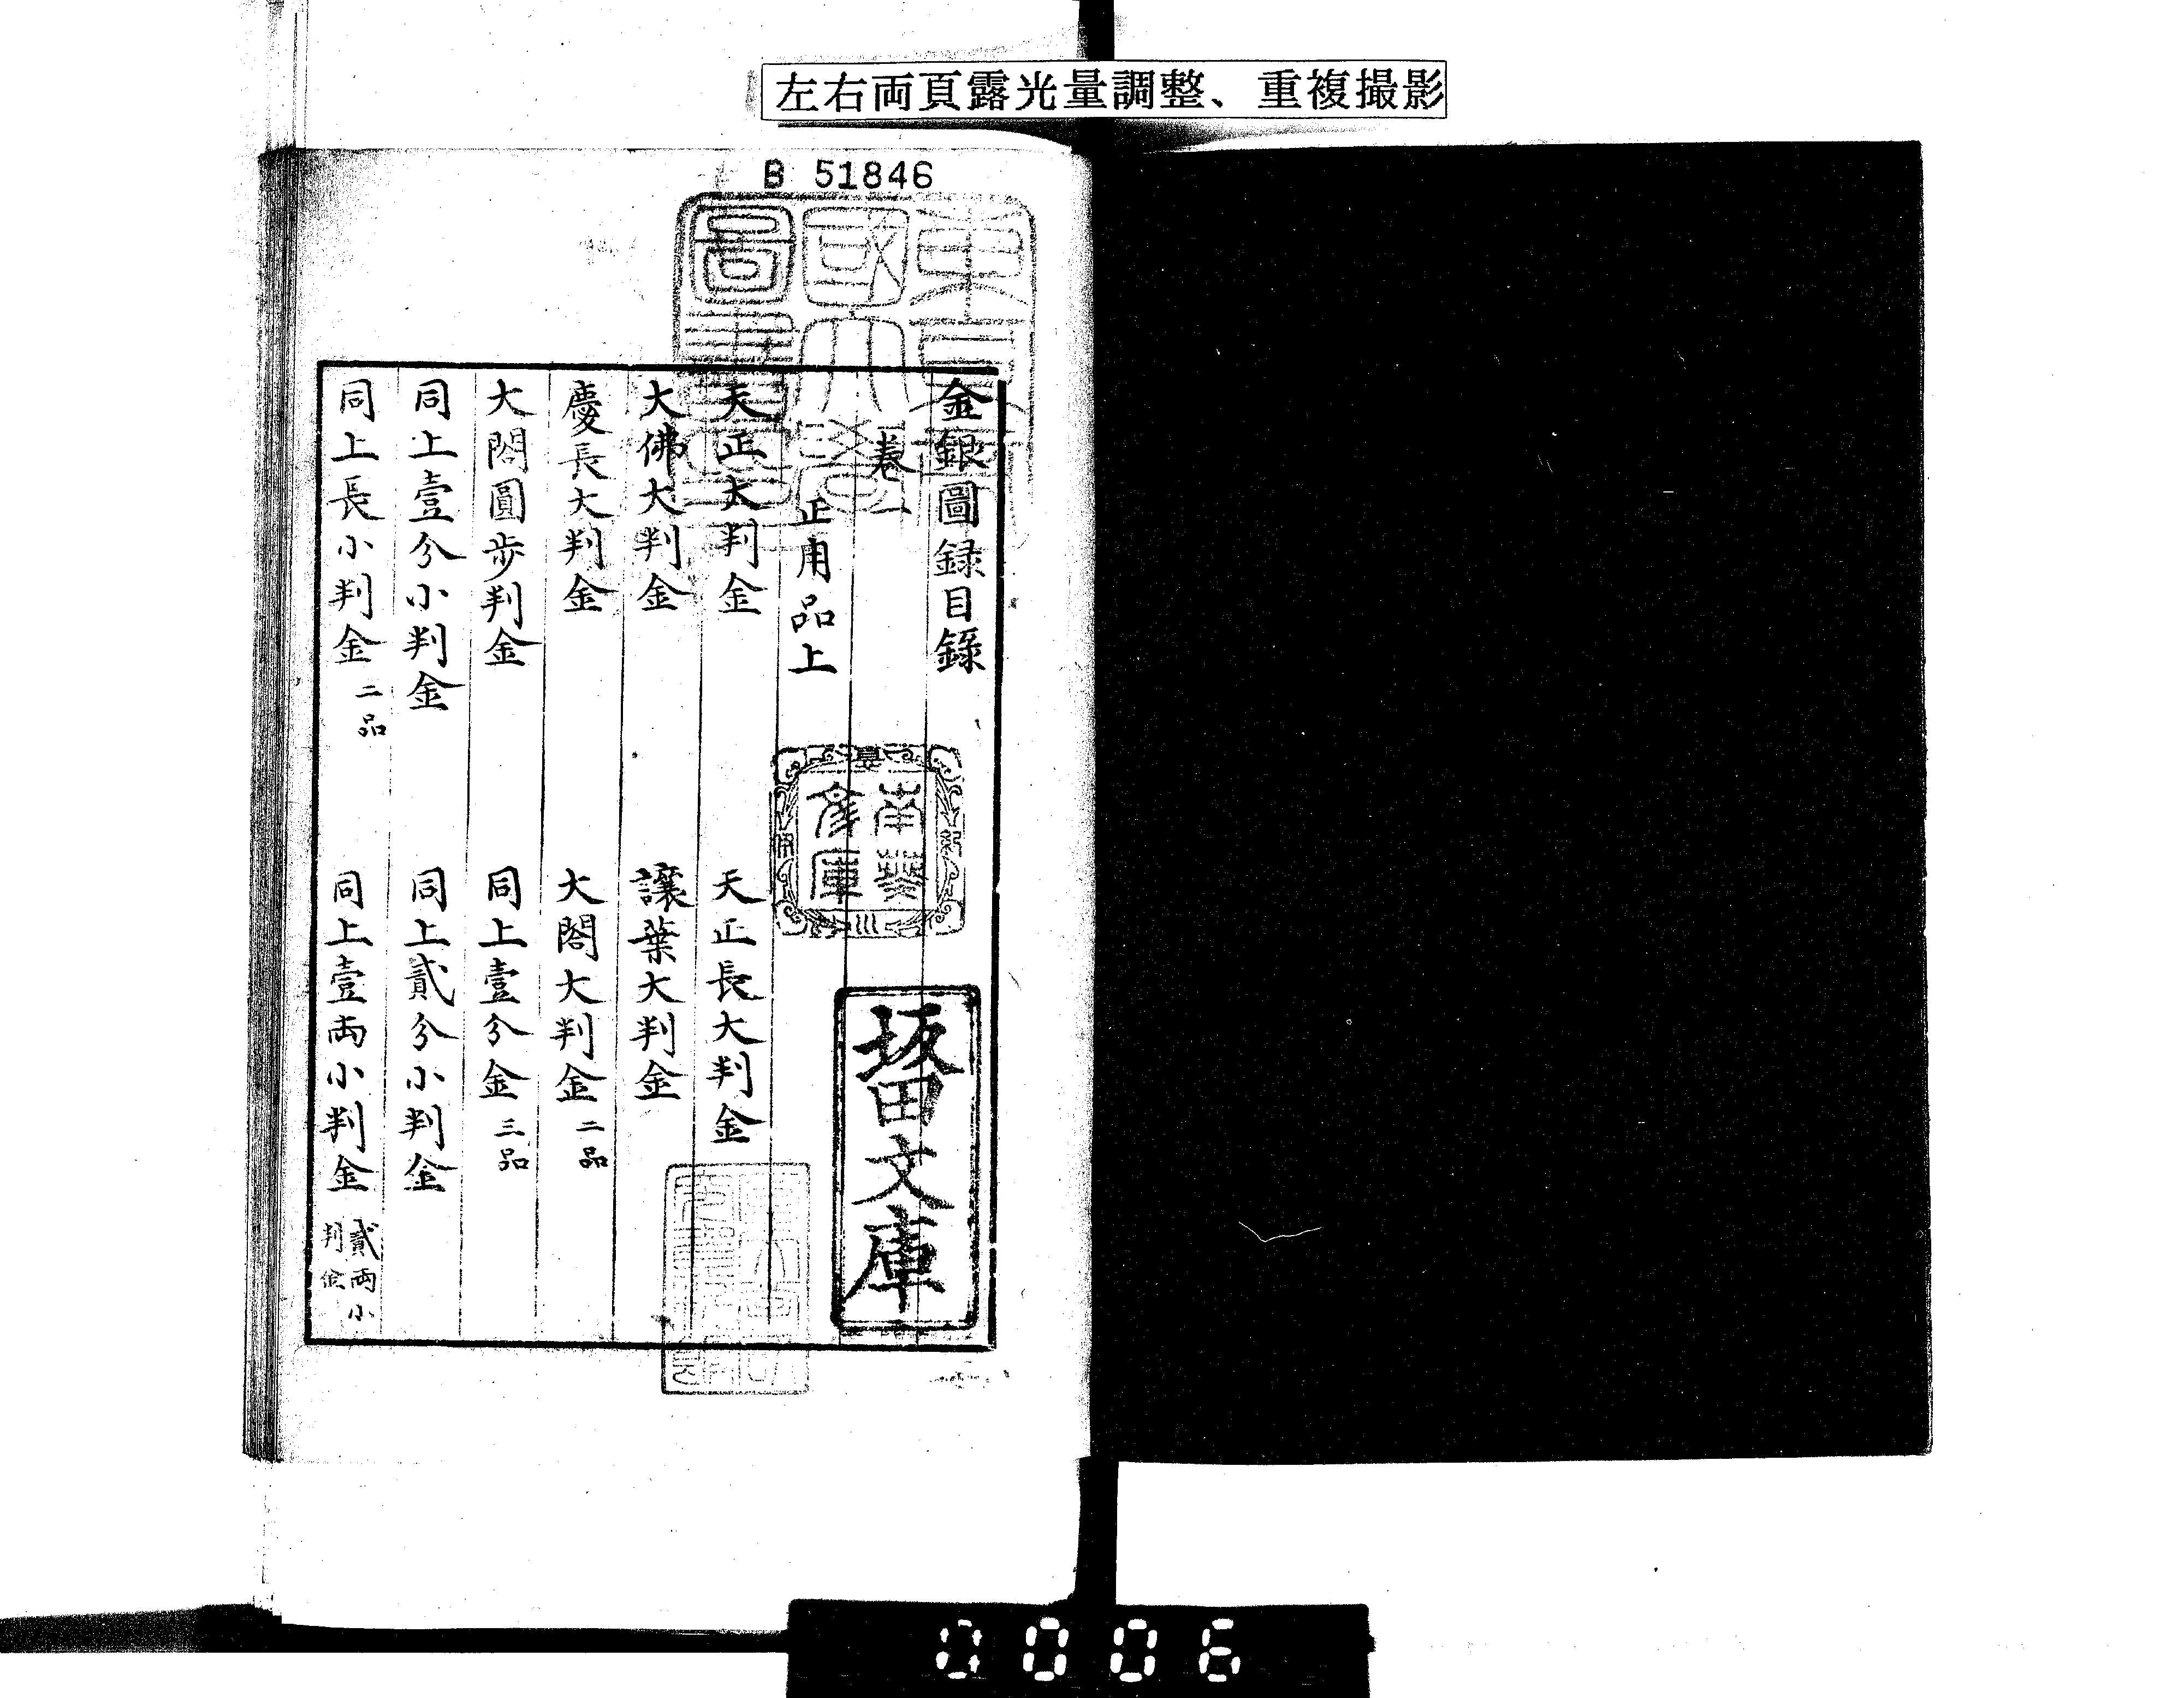 左右両頁露光量調整、重複撮影
B 51846
金銀圖録目錄
卷一
正用品上
天正大判金　天正長大判金
大佛大判金　讓葉大判金
慶長大判金　大閤大判金 二品
大閤圓歩判金　同上壹分金 三品
同上壹分小判金　同上貳分小判金
同上長小判金 二品　同上壹両小判金 貳両小判金
坂田文庫
0006